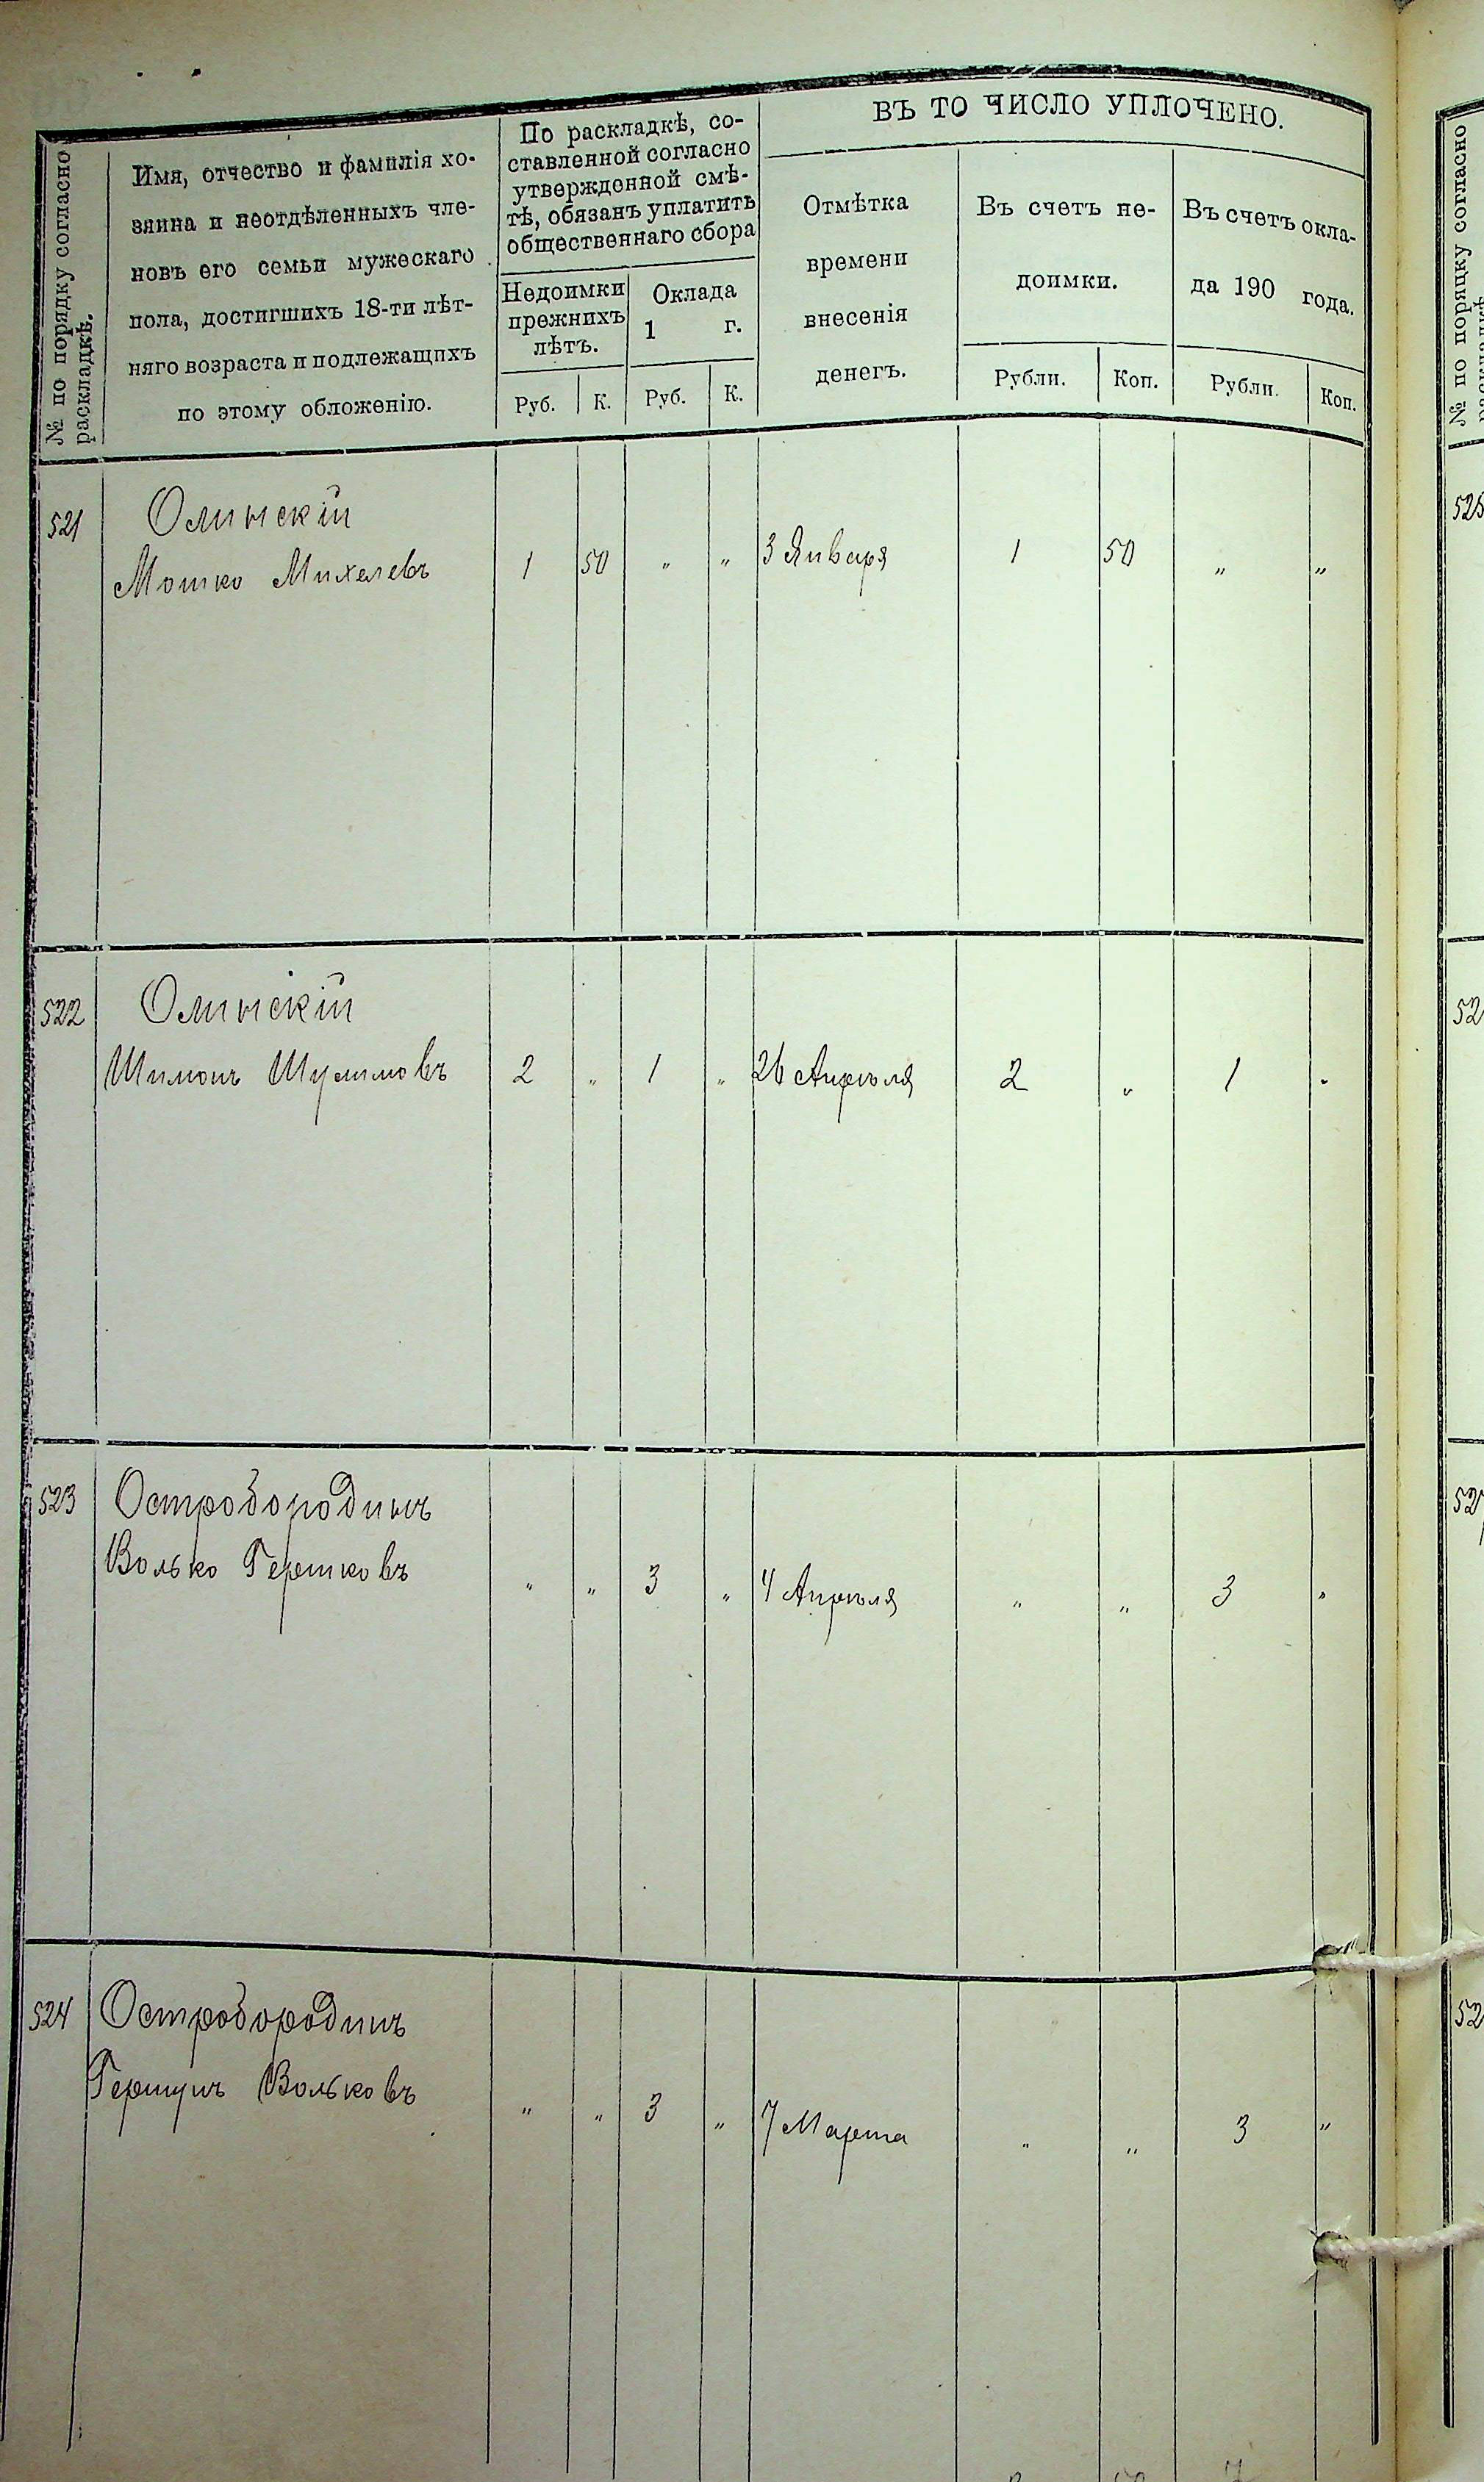 № по порядку согласно
раскладкѣ.
Имя, отчество и фамилія хо-
зяина и неотдѣленныхъ чле-
новъ его семьи мужескаго
пола, достигшихъ 18-ти лѣт-
няго возраста и подлежащихъ
по этому обложенію.
По раскладкѣ, со-
ставленной согласно
утвержденной смѣ-
тѣ, обязанъ уплатить
общественнаго сбора
Недоимки
прежнихъ
лѣтъ.
Оклада
1 г.
Руб. К. Руб. К.
ВЪ ТО ЧИСЛО УПЛОЧЕНО.
Отмѣтка
времени
внесенія
денегъ.
Въ счетъ не-
доимки.
Въ счетъ окла-
да 190 года.
Рубли. Коп. Рубли. Коп.
521 Олинскій
Мошко Михелевъ 1 50 „ „ 3 Января 1 50 „ „
522 Олинскій
Шимонъ Шулимовъ 2 „ 1 „ 26 Апрѣля 2 „ 1 „
523 Остробородинъ
Волько Гершковъ „ „ 3 „ 4 Апрѣля „ „ 3 „
524 Остробородинъ
Гершунъ Вольковъ „ „ 3 „ 7 Марта „ „ 3 „
№ по порядку согласно